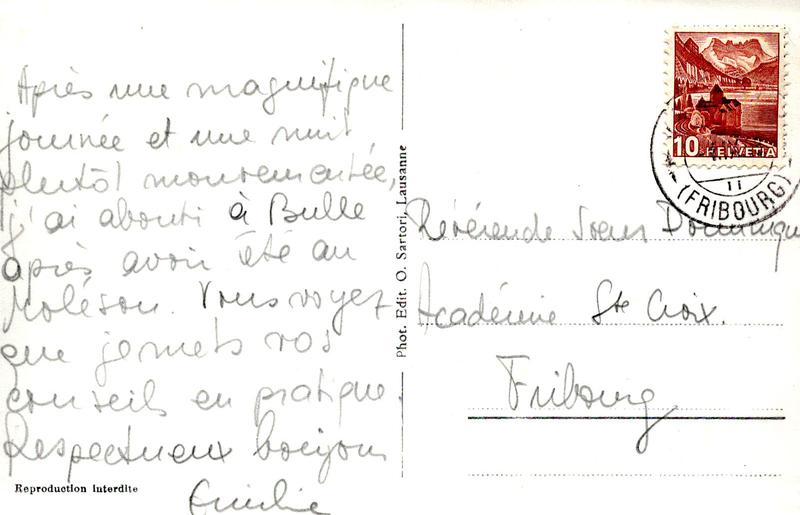 Après une magnifique
journée et une nuit
plutôt mouvementée,
j'ai abouti à Bulle
après avoir été au
Moléson. Vous voyez
que je mets vos
conseils en pratique.
Respectueux bonjour
Emilie
Reproduction interdite
Phot. Edit. O. Sartori, Lausanne
10 HELVETIA
(FRIBOURG)
Révérende Soeur Dominique
Académie Ste Croix.
Fribourg